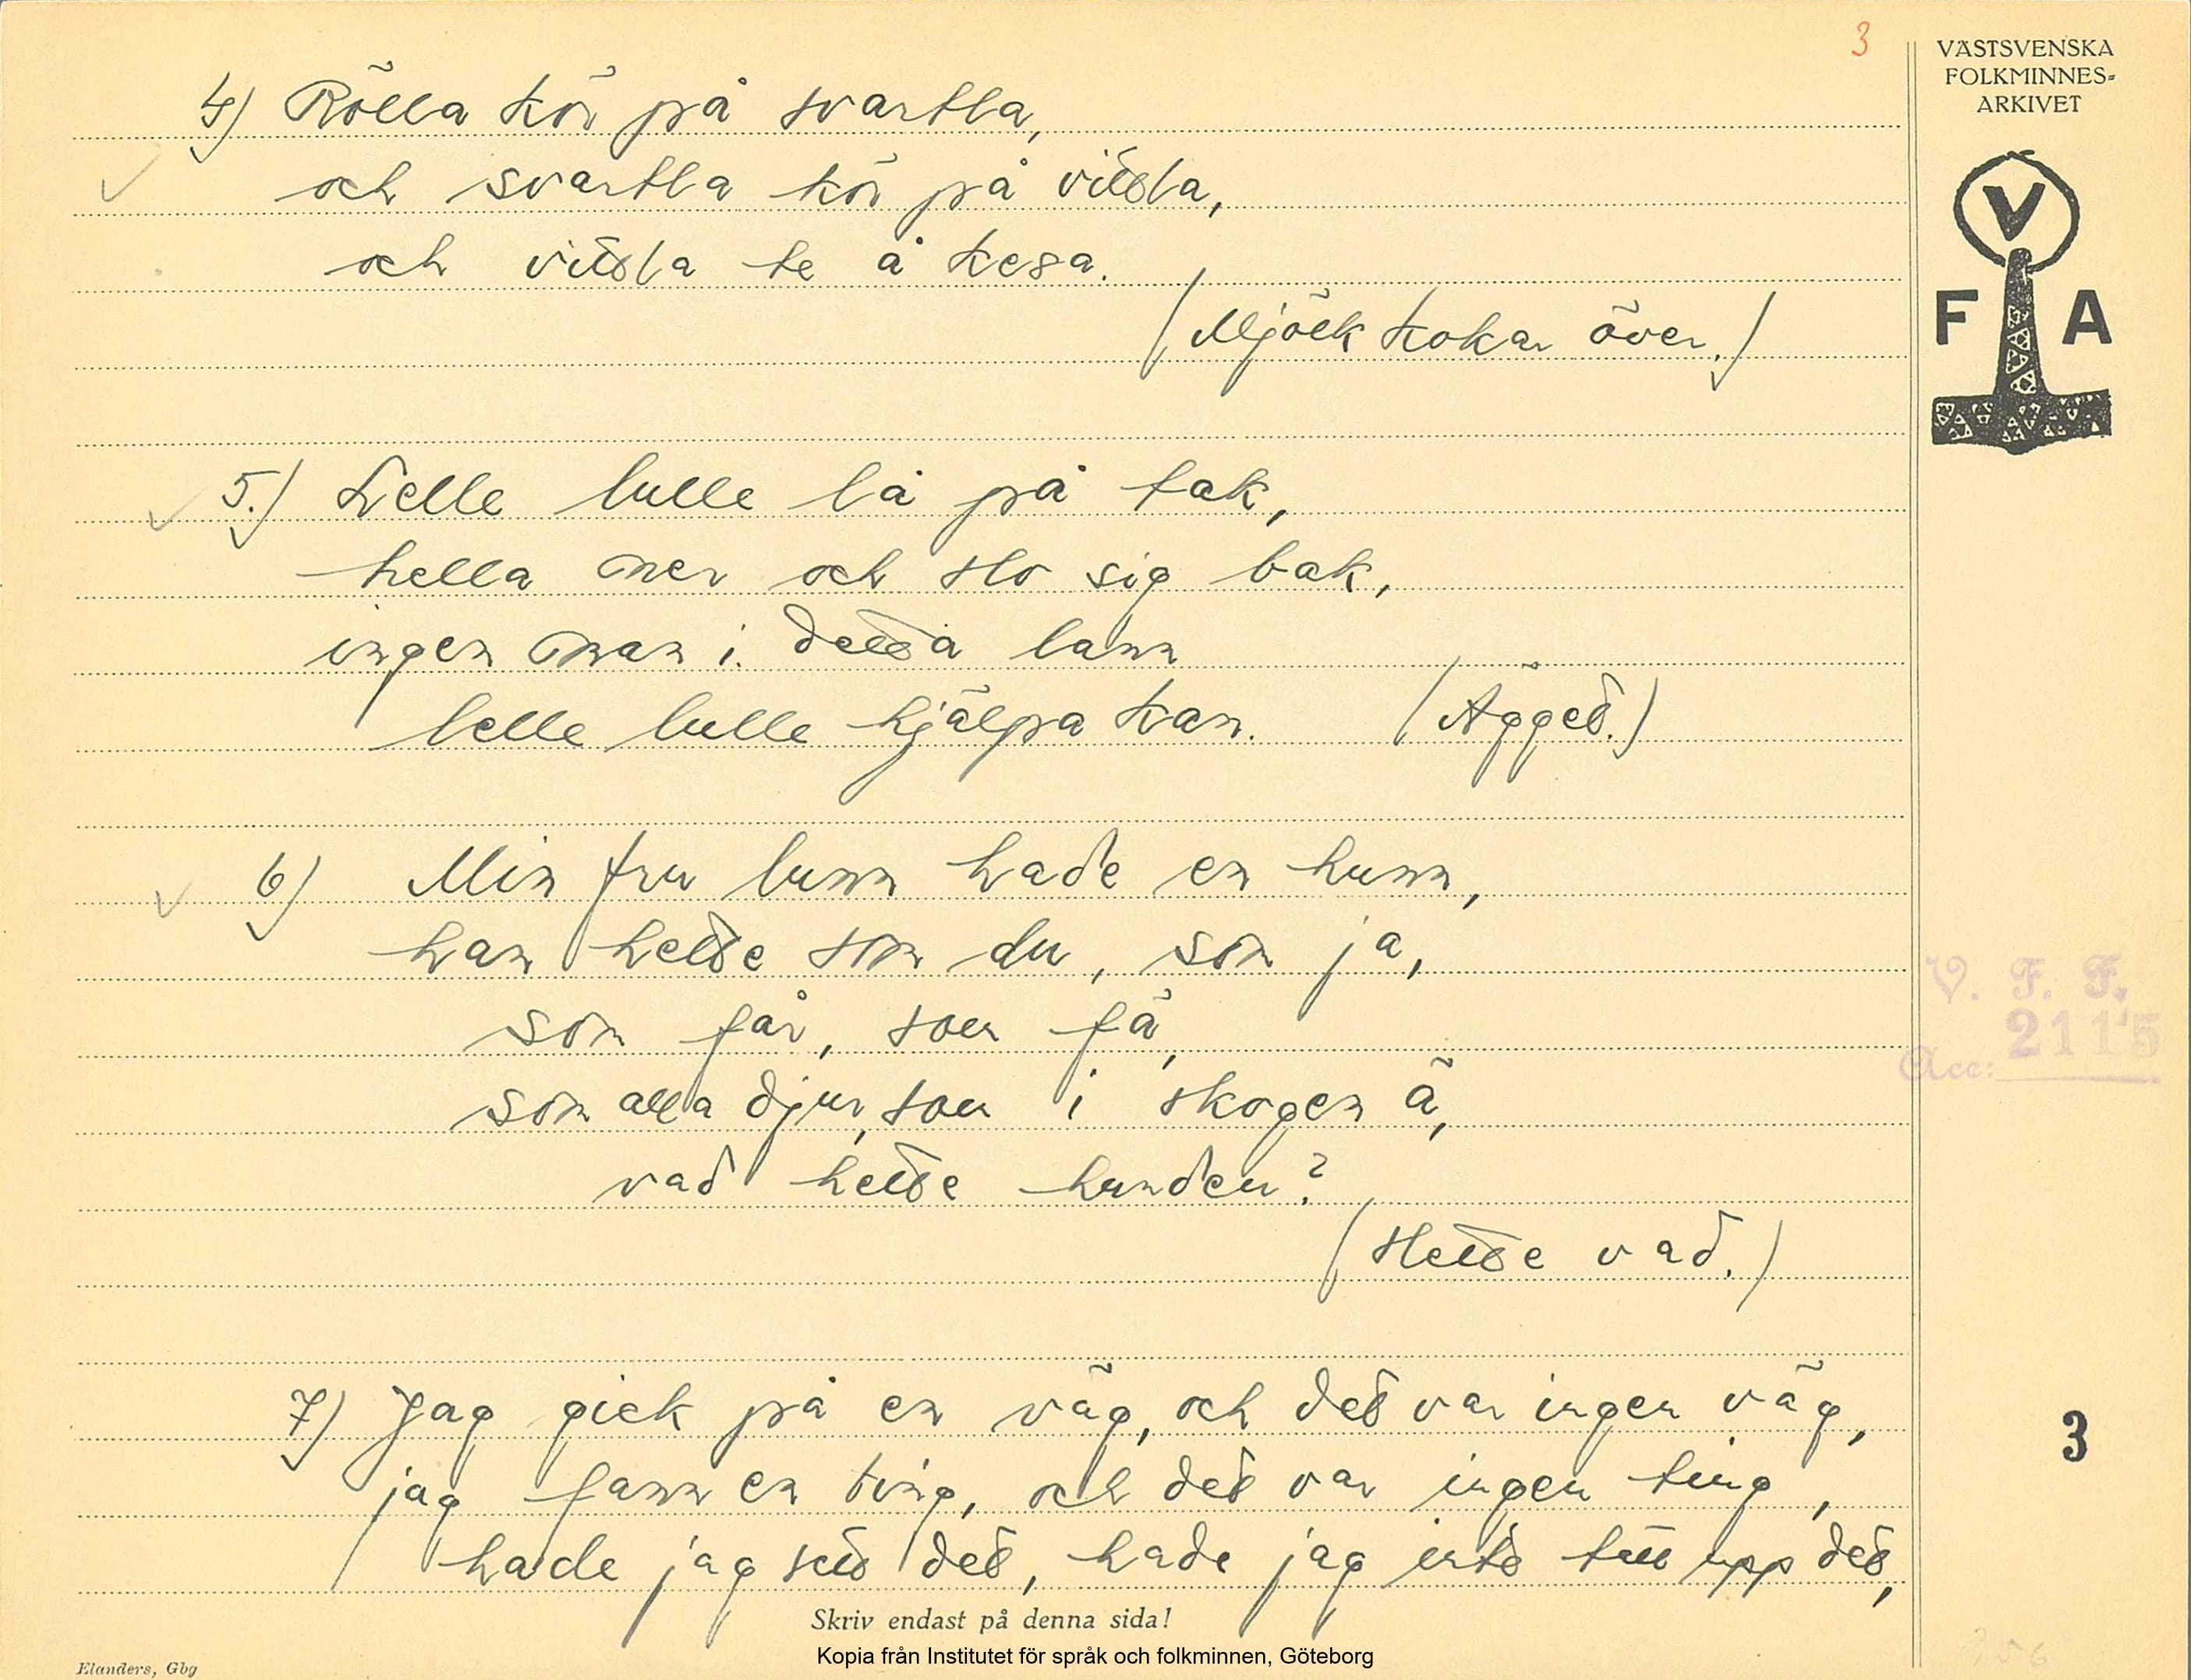 3
VÄSTSVENSKA
FOLKMINNES-
ARKIVET
V
F A
4) Rölla kör på svartla,
och svartla kör på vittla,
och vittla te å kesa.
(Mjölk kokar över.)
5.) Lelle lulle lå på tak,
hella ner och slo sig bak,
ingen man i detta lann
lelle lulle hjälpa kan. (Ägget.)
6) Min fru lunn hade en hunn,
han hette som du, som ja,
som får, som fä,
som alla djur, som i skogen ä,
vad hette hunden?
(Hette vad.)
7) Jag gick på en väg, och det var ingen väg,
jag fann en ting, och det var ingen ting,
hade jag sett det, hade jag inte tatt upp det,
V. F. F.
Acc: 2115
3
Skriv endast på denna sida!
Kopia från Institutet för språk och folkminnen, Göteborg
Elanders, Gbg